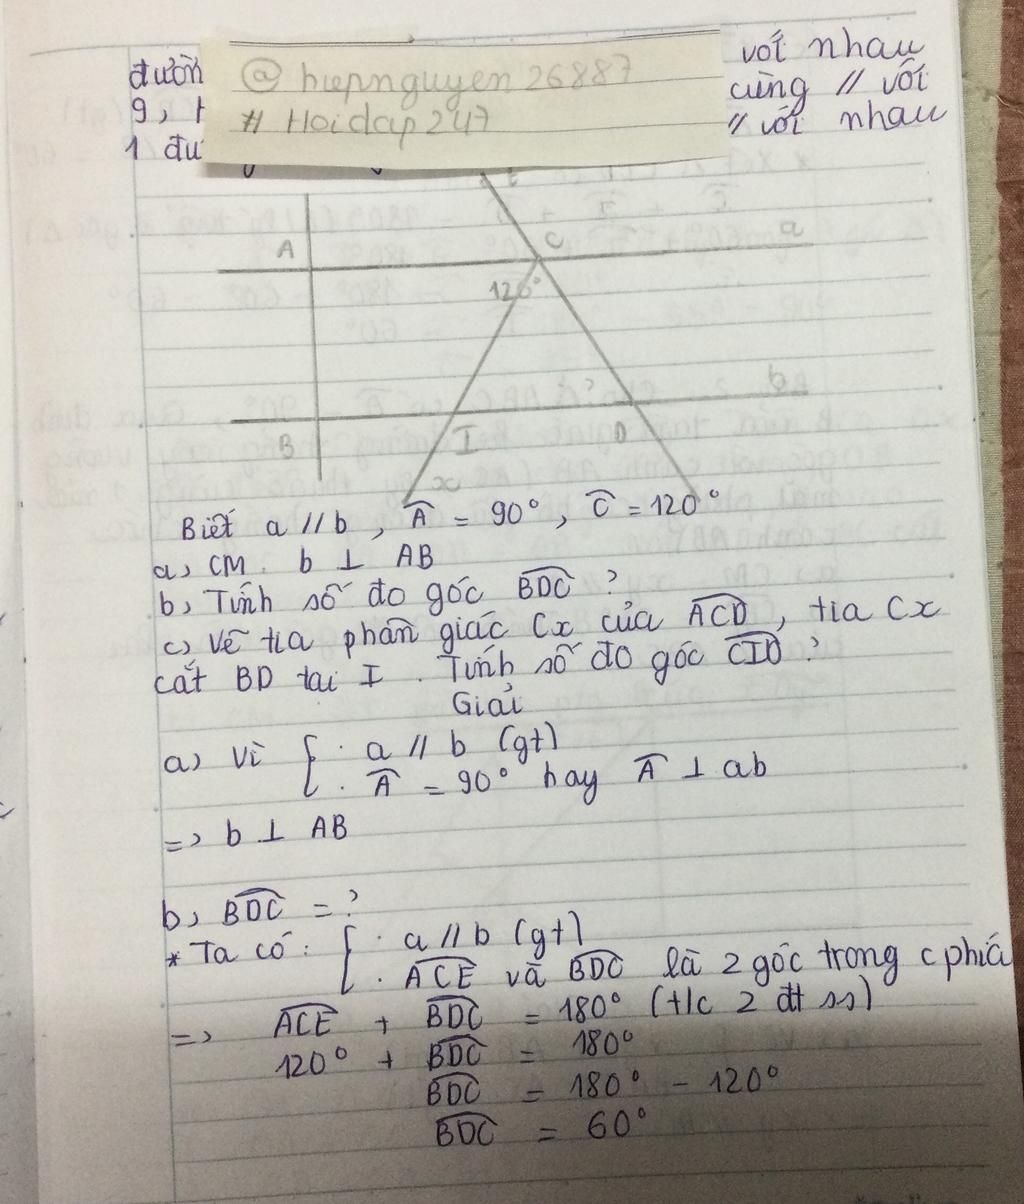 đườn @ hiepnguyen 26887 với nhau
9, # Hoidap247 cùng // với
1 đư // với nhau
A C a
120°
B I D ? b
x
Biết a // b, Â = 90°, Ĉ = 120°
a, CM. b ⊥ AB
b, Tính số đo góc BDC ?
c, Vẽ tia phân giác Cx của ACD, tia Cx
cắt BD tại I. Tính số đo góc CID ?
Giải
a, Vì { . a // b (gt)
. Â = 90° hay Â ⊥ ab
=> b ⊥ AB
b, BDC = ?
* Ta có: { . a // b (gt)
. ACE và BDC là 2 góc trong c phía
=> ACE + BDC = 180° (t/c 2 đt ss)
120° + BDC = 180°
BDC = 180° - 120°
BDC = 60°